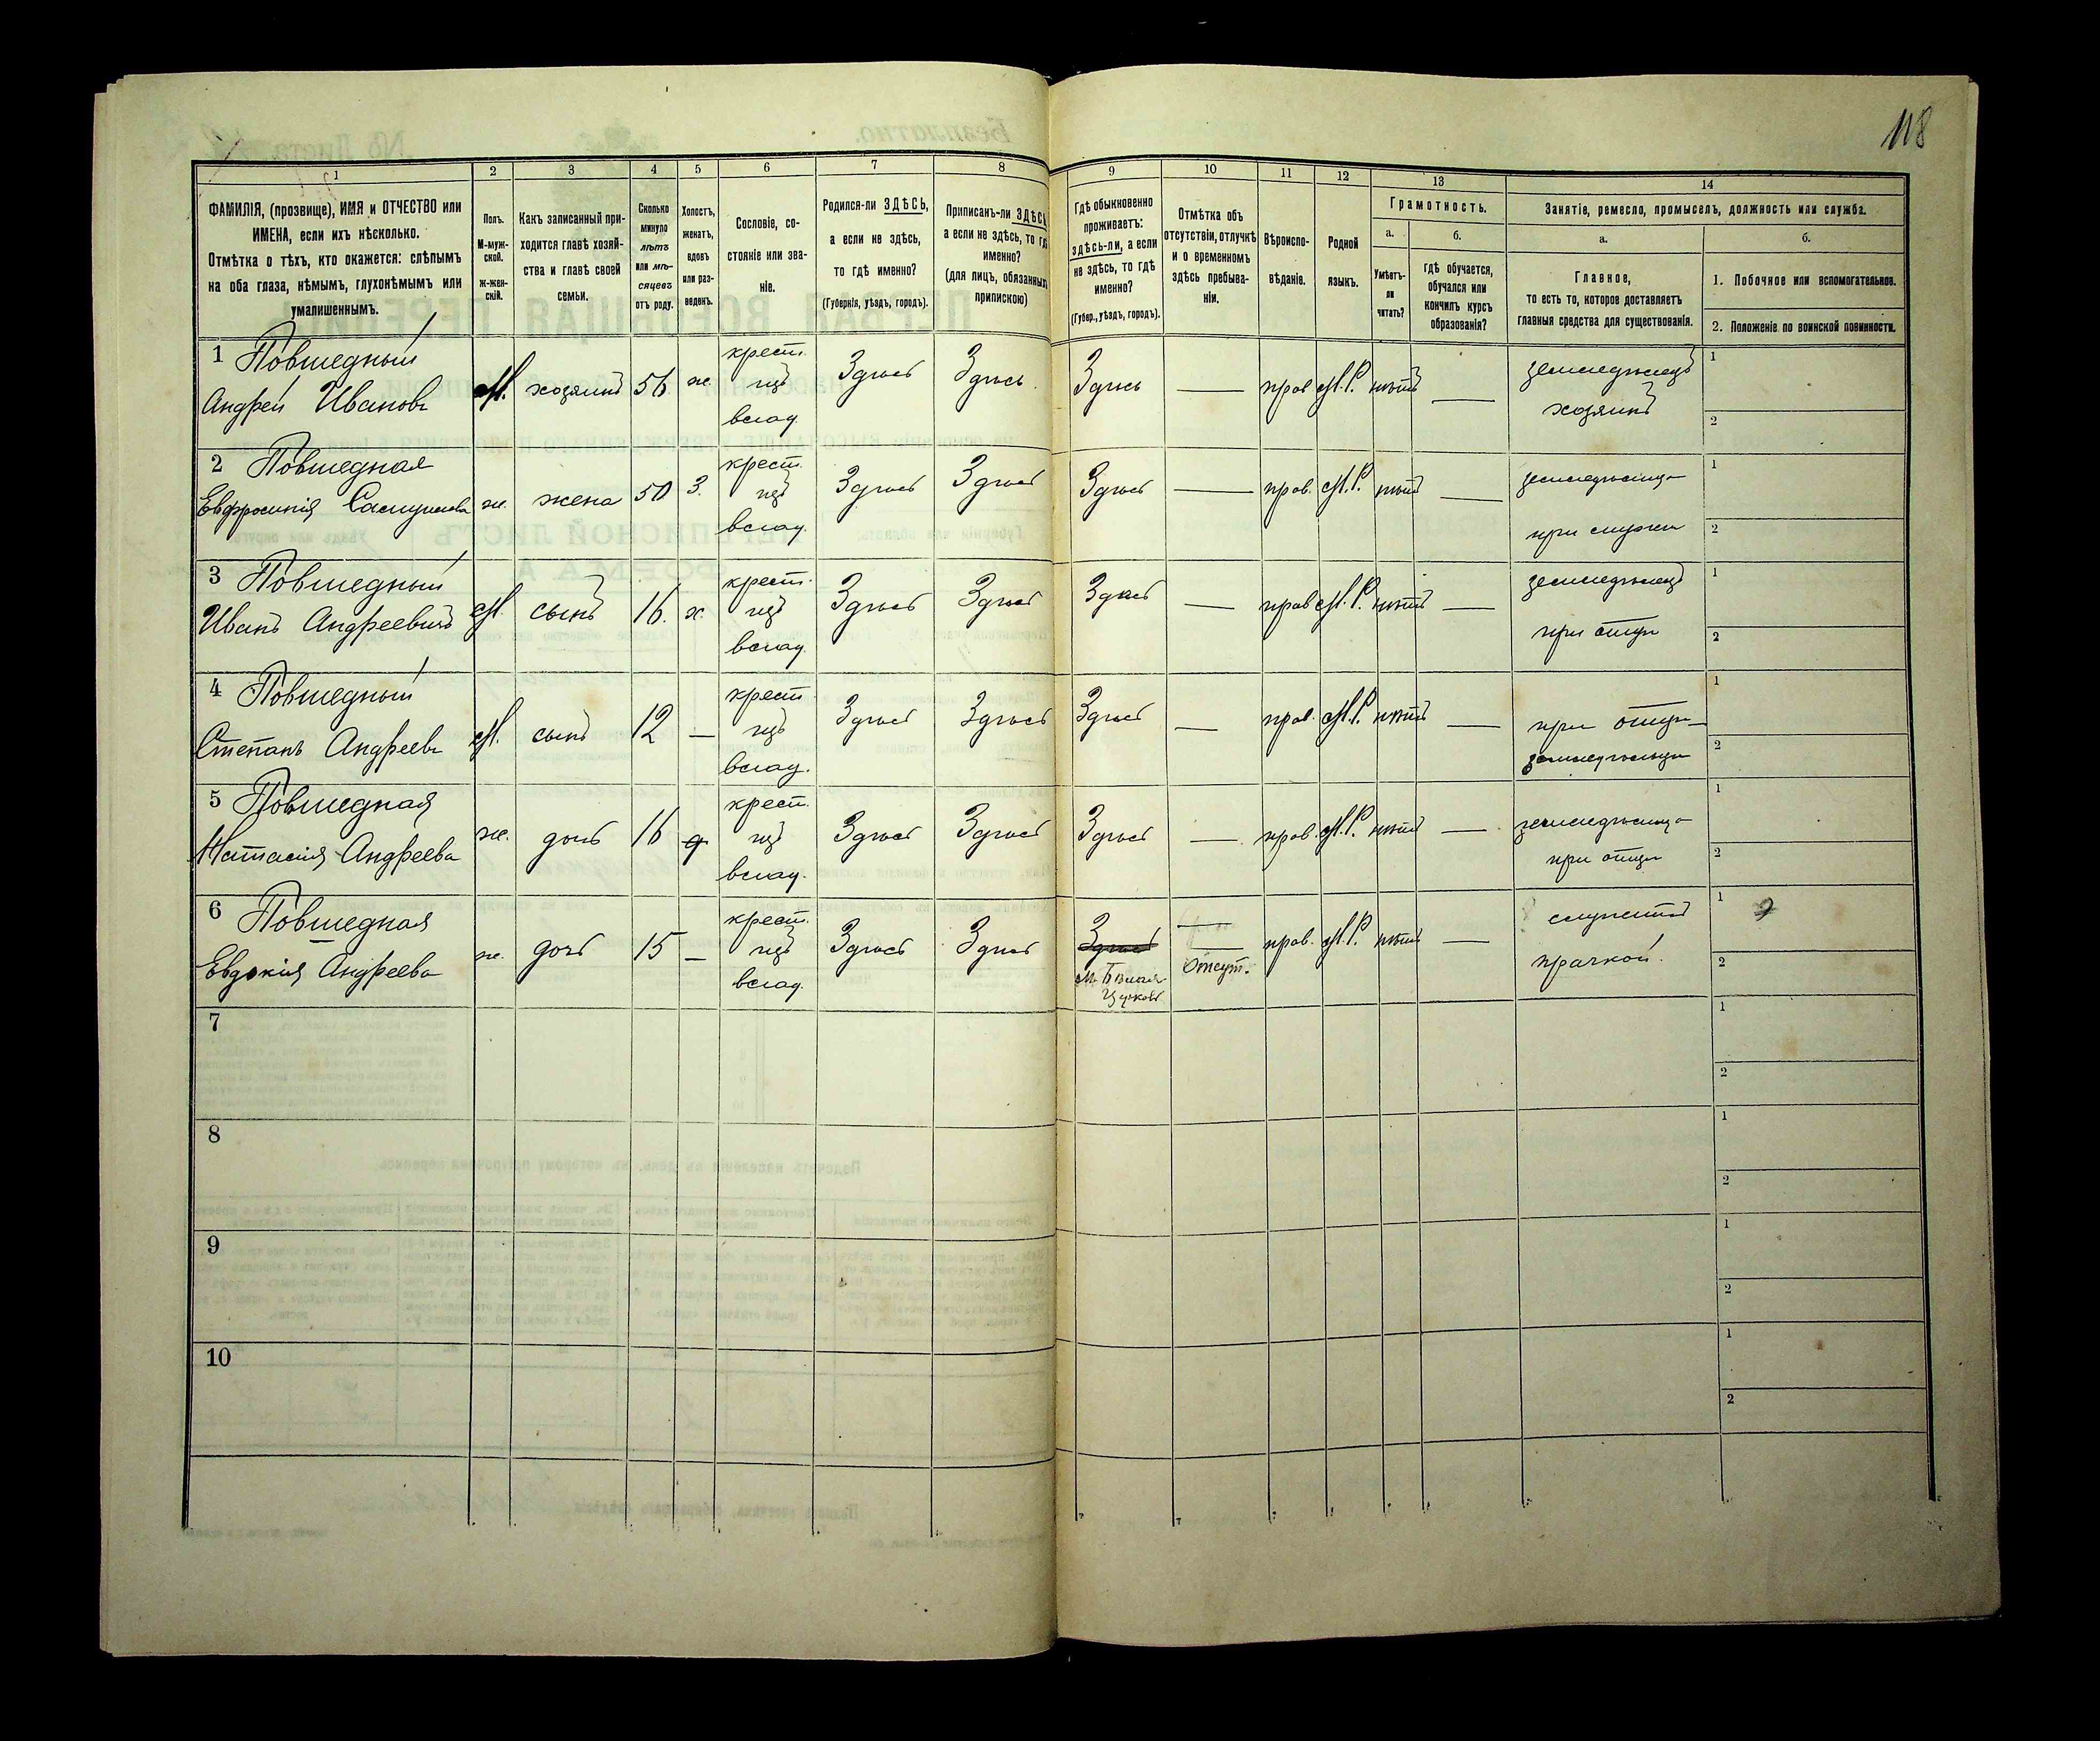 118
1
2
3
4
5
6
7
8
9
10
11
12
13
14
ФАМИЛІЯ, (прозвище), ИМЯ и ОТЧЕСТВО или
ИМЕНА, если ихъ нѣсколько.
Отмѣтка о тѣхъ, кто окажется: слѣпымъ
на оба глаза, нѣмымъ, глухонѣмымъ или
умалишеннымъ.
Полъ.
М-муж-
ской.
ж-жен-
скій.
Какъ записанный при-
ходится главѣ хозяй-
ства и главѣ своей
семьи.
Сколько
минуло
лѣтъ
или мѣ-
сяцевъ
отъ роду.
Холостъ,
женатъ,
вдовъ
или раз-
веденъ.
Сословіе, со-
стояніе или зва-
ніе.
Родился-ли ЗДѢСЬ,
а если не здѣсь,
то гдѣ именно?
(Губернія, уѣздъ, городъ).
Приписанъ-ли ЗДѢСЬ,
а если не здѣсь, то гдѣ
именно?
(для лицъ, обязанныхъ
припискою)
Гдѣ обыкновенно
проживаетъ:
здѣсь-ли, а если
не здѣсь, то гдѣ
именно?
(Губер., уѣздъ, городъ).
Отмѣтка объ
отсутствіи, отлучкѣ
и о временномъ
здѣсь пребыва-
ніи.
Вѣроиспо-
вѣданіе.
Родной
языкъ.
Грамотность.
а.
Умѣетъ-
ли
читать?
б.
гдѣ обучается,
обучался или
кончилъ курсъ
образованія?
Занятіе, ремесло, промыселъ, должность или служба.
а.
Главное,
то есть то, которое доставляетъ
главныя средства для существованія.
б.
1. Побочное или вспомогательное.
2. Положеніе по воинской повинности.
1 Повшедный
Андрей Ивановъ
М. хозяинъ 56 ж. крест.
влад.
Здѣсь Здѣсь Здѣсь — прав. М.Р. нѣтъ —
земледѣлецъ
хозяинъ
1
2
2 Повшедная
Евфросинія
ж. жена 50 З. крест.
влад.
Здѣсь Здѣсь Здѣсь — прав. М.Р. нѣтъ —
при мужи
1
2
3 Повшедный
Иванъ Андреевичъ
М. сынъ 16. х. крест.
влад.
Здѣсь Здѣсь Здѣсь — прав М.Р. нѣтъ —
земледѣлецъ
при отцѣ
1
2
4 Повшедный
Степанъ Андреевъ
М. сынъ 12 — крест.
влад.
Здѣсь Здѣсь Здѣсь — прав. М.Р. нѣтъ —
при отцѣ
1
2
5 Повшедная
Наталія Андреева
ж. дочь 16 д. крест.
влад.
Здѣсь Здѣсь Здѣсь — прав. М.Р. нѣтъ —
при отцѣ
1
2
6 Повшедная
Евдокія Андреева
ж. дочь 15 — крест.
влад.
Здѣсь Здѣсь Здѣсь
м. Бѣлая
Церковь
Отсут.
прав. М.Р. нѣтъ —
служитъ
прачкой.
1
2
7
1
2
8
1
2
9
1
2
10
1
2